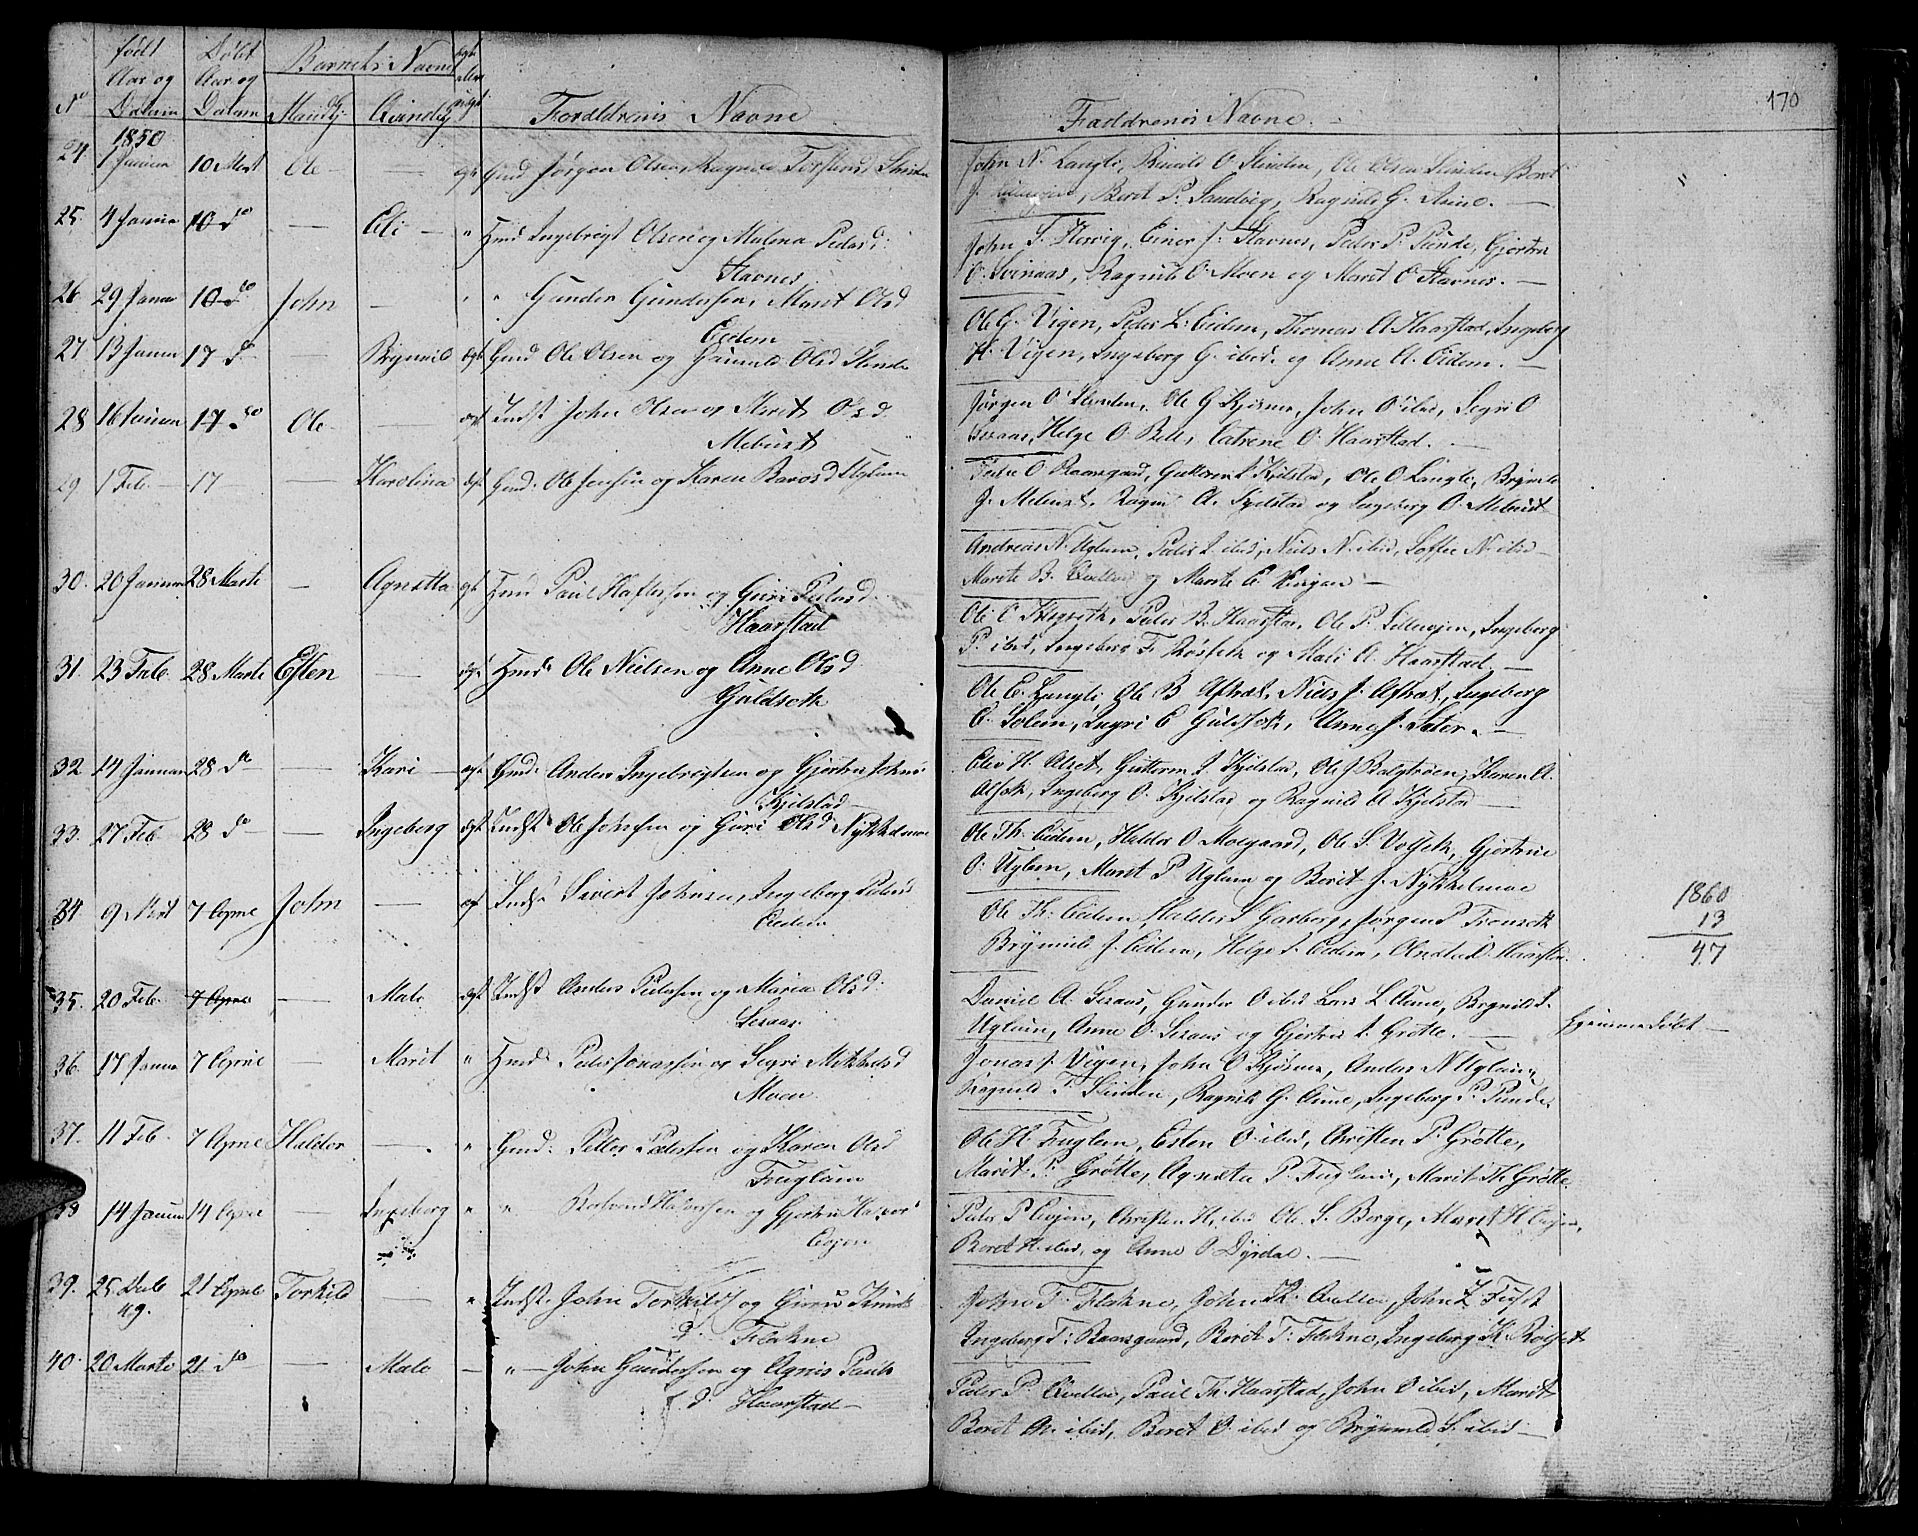 170
No
født Aar og Datum
Døbt Aar og Datum
Barnets Navne
Mandkj.
Qvindkj.
Forældrenes Navne
Faddrenes Navne.
1850
24. 1 Januar 10 Mart Ole — Gmd Jørgen Olsen, Ragnild
John N. Langli, O. Slinden, Ole Olsen Slinden Beret
Beret P. Sandbig, Ragnild G. Aune. —
25. 4 Januar 10 do — Eli — " Hmd Ingebrigt Olsen og Malena Pedersd:
Stavnes
John S. Flervig, Einer J. Stavnes, Peder P. Sunde, Gjertru
O. Svinaas, Ragnild O. Moen og Marit O Stavnes. —
26 29 Januar 10 do John — " " Gunder Gundersen, Marit Olsd
Eidem
Ole G. Vigen, Peder L. Eidem, Thomas A Haarstad, Ingeberg
H. Vigen, Ingeberg G. ibid. og Anne A. Eidem. —
27 13 Januar 17 do — Brynild ægt Gmd Ole Olsen og Gunild Olsd Slinde
Jørgen O Slinden, Ole G Kjøsnes, John O ibid, Segri O
Seraas, Helge O. Bell, Catrene O. Haarstad. —
28 16 Januar 17 do Ole — ægt Indst John Olsen og Marit Olsd.
Mebust
Peder O Raansgaard, Guttorm J. Kjelstad, Ole O Langli, Brynild
J. Mebust, Ragnild A. Kjelstad og Ingeberg O. Mebust
29 1 Feb — 17 — Karolina ægt Gmd. Ole Jensen og Karen Barosd Uglum
Andreas N. Uglum, Peder J. ibid, Niels N. ibid, Soffie N. ibid —
Marite B. Qvello og Marite E. —
30. 20 Januar 28 Marte — Agnetta ægt Hmd Paul Haftorsen og Guri Pedersd.
Haarstad
Ole O Kjøgseth, Peder B. Haarstad, Ole P. Lillevojen, Ingeberg
P. ibid, Ingeberg F. Røsseth og Mali A. Haarstad —
31. 23 Feb. 28 Marte Esten — ægt Hmd. Ole Nielsen og Anne Olsd
Guldseth
Ole E. Langli, Ole B Aftret, Niels J. Aftret, Ingeberg
E. Solem, Ingri E Guldseth, Anne J. Sater. —
32 14 Januar 28 do — Kari — ægt Gmd. Anders Ingebrigtsen og Gjertru Johnsd
Kjelstad
Eliv H. Alset, Guttorm J. Kjelstad, Ole J Balstrøen, Karen A.
Ingeberg O. Kjelstad og Ragnild A Kjelstad —
33. 27 Feb 28 do — Ingeberg ægt Indst Ole Johnsen og Guri Olsd Nykkelmoe
Ole Th. Eidem, Haldor O Moegaard, Ole S. Volseth, Gjertrue
O. Uglum, Marit P Uglum og Beret J. Nykkelmoe
34 9 Mart 7 Aprile John — æg Indst Sivert Johnsen, Ingeberg Pedersd
Eidem
Ole Th. Eidem, Haldor S Garberg, Jørgen P Tronseth
Brynild J. Eidem, Helge S. Eidem, D. Haarstad.
1860
13
47
35. 20 Feb. 7 Aprile — Male ægt Indst Anders Pedersen og Maria Olsd:
Seraas
Daniel A. Seraas, Gunder O ibid Lars L Aune, Brynild S.
Uglum, Anne O. Seraas og Gjertru L. Grøtte. —
Hjemmedøbt —
36. 17 Januar 7 Aprile — Marit " Hmd Peder Jonassen og Segri Mikkelsd
Moen
Jonas J. Vigen, John O Kjøsnes, Anders N Uglum,
Ragnild T. Slinden, Ragnild G. Aune, Ingeberg P. Sunde.
37. 11 Feb. 7 Aprile Haldor — " Gmd. Petter Pedersen og Karen Olsd
Fuglum
Ole H. Fuglum, Esten O. ibid, Christen P. Grøtte,
Marit P. Grøtte, Agneta P. Fuglum, Marit Th Grøtte.
38 14 Januar 14 Aprile — Ingeberg " " Halvorsen og Gjertru
Evjen
Peder P Evjen, Christen H. ibid Ole S. Berge, Marit H Evjen,
Beret H. ibid, og Anne O Dyrdal. —
39. 25 Decb 49. 21 Aprile Torkild — " Indst. John Torkilds og Guru Knuds
d. Flakne
John T. Flakne, John Th. Qvello, John Z Fuset
Ingeberg T. Raansgaard, Beret T. Flakne, Ingeberg K. Rolset
40. 20 Marte 21 do — Male — " — John Gundersen og Agnis Pauls
d. Haarstad —
Peder P. Qvello, Paul Th. Haarstad, John O ibid, Marit
Beret A. ibid, Beret O. ibid og Brynild S. ibid —